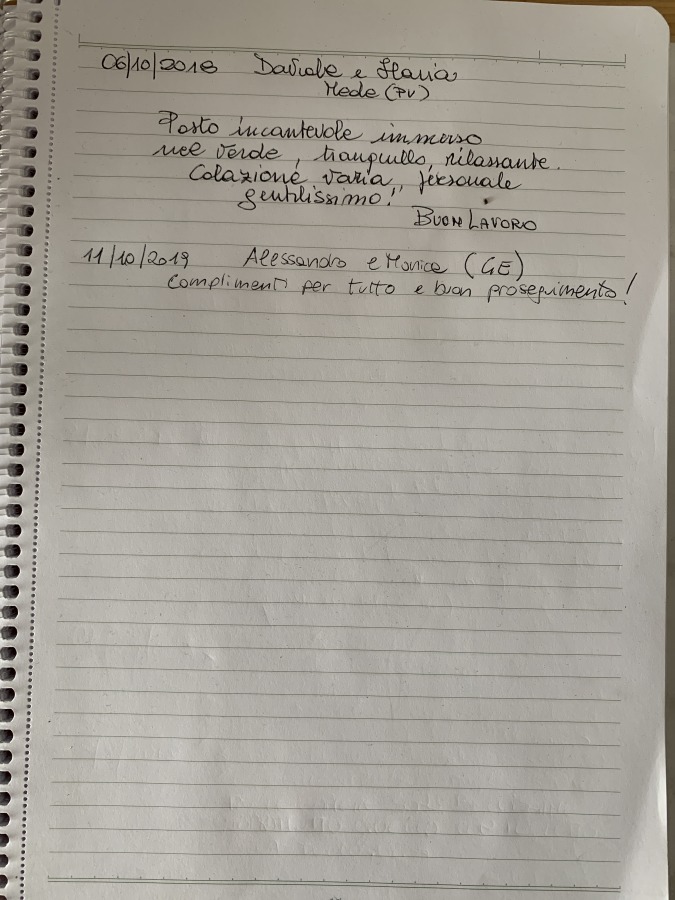 06/10/2018 Davide e Ilaria
Mede (PV)
Posto incantevole immerso
nel verde, tranquillo, rilassante.
Colazione varia, personale
gentilissimo!
BUON LAVORO
11/10/2019 Alessandro e Monica (GE)
Complimenti per tutto e buon proseguimento!